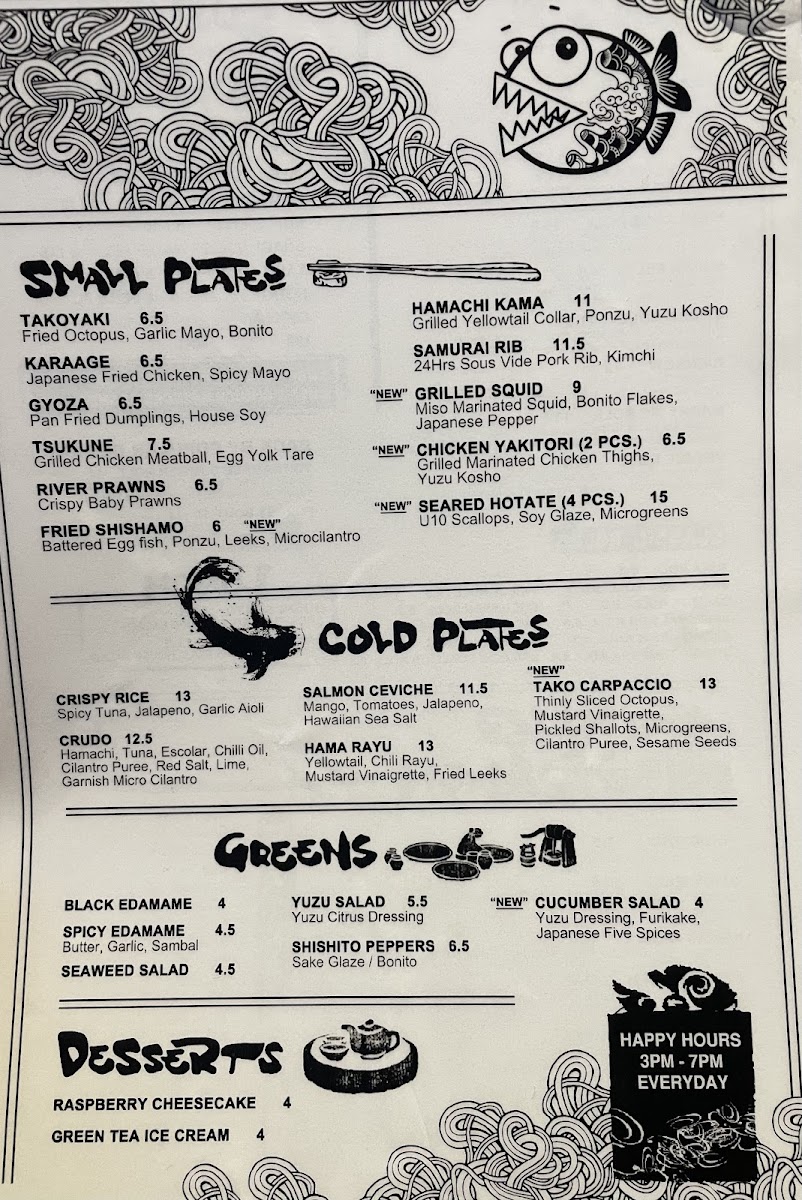 SMALL PLATES
TAKOYAKI 6.5
Fried Octopus, Garlic Mayo, Bonito
KARAAGE 6.5
Japanese Fried Chicken, Spicy Mayo
GYOZA 6.5
Pan Fried Dumplings, House Soy
TSUKUNE 7.5
Grilled Chicken Meatball, Egg Yolk Tare
RIVER PRAWNS 6.5
Crispy Baby Prawns
FRIED SHISHAMO 6 "NEW"
Battered Egg fish, Ponzu, Leeks, Microcilantro
HAMACHI KAMA 11
Grilled Yellowtail Collar, Ponzu, Yuzu Kosho
SAMURAI RIB 11.5
24Hrs Sous Vide Pork Rib, Kimchi
"NEW" GRILLED SQUID 9
Miso Marinated Squid, Bonito Flakes,
Japanese Pepper
"NEW" CHICKEN YAKITORI (2 PCS.) 6.5
Grilled Marinated Chicken Thighs,
Yuzu Kosho
"NEW" SEARED HOTATE (4 PCS.) 15
U10 Scallops, Soy Glaze, Microgreens
COLD PLATES
CRISPY RICE 13
Spicy Tuna, Jalapeno, Garlic Aioli
CRUDO 12.5
Hamachi, Tuna, Escolar, Chilli Oil,
Cilantro Puree, Red Salt, Lime,
Garnish Micro Cilantro
SALMON CEVICHE 11.5
Mango, Tomatoes, Jalapeno,
Hawaiian Sea Salt
HAMA RAYU 13
Yellowtail, Chili Rayu,
Mustard Vinaigrette, Fried Leeks
"NEW"
TAKO CARPACCIO 13
Thinly Sliced Octopus,
Mustard Vinaigrette,
Pickled Shallots, Microgreens,
Cilantro Puree, Sesame Seeds
GREENS
BLACK EDAMAME 4
SPICY EDAMAME 4.5
Butter, Garlic, Sambal
SEAWEED SALAD 4.5
YUZU SALAD 5.5
Yuzu Citrus Dressing
SHISHITO PEPPERS 6.5
Sake Glaze / Bonito
"NEW" CUCUMBER SALAD 4
Yuzu Dressing, Furikake,
Japanese Five Spices
DESSERTS
RASPBERRY CHEESECAKE 4
GREEN TEA ICE CREAM 4
HAPPY HOURS
3PM - 7PM
EVERYDAY